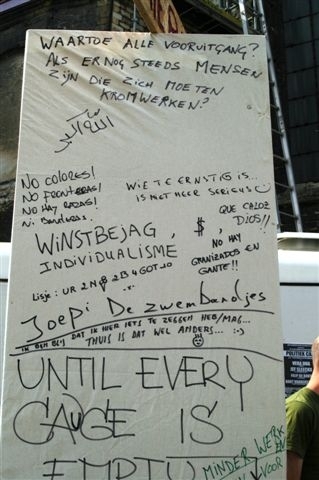 WAARTOE ALLE VOORUITGANG?
ALS ER NOG STEEDS MENSEN
ZIJN DIE ZICH MOETEN
KROMWERKEN?
الله أكبر
NO COLORES!
NO FRONTERAS!
NO HAY RAZAS!
Ni Banderas.
WIE TE ERNSTIG IS...
IS NIET MEER SERIEUS
QUE CALOZ
DIOS!!
WiNSTBEJAG, $,
INDIVIDUALISME
NO HAY
GRANIZADOS EN
GANTE!!
Lisje: UR 2 N8 2 B 4 GOT10
Joepi De zwembandjes
IK BEN BLIJ DAT IK HIER IETS TE ZEGGEN HEB/MAG...
THUIS IS DAT WEL ANDERS... :-)
UNTIL EVERY
CAGE IS
EMPTY
MINDER WERK
VOOR